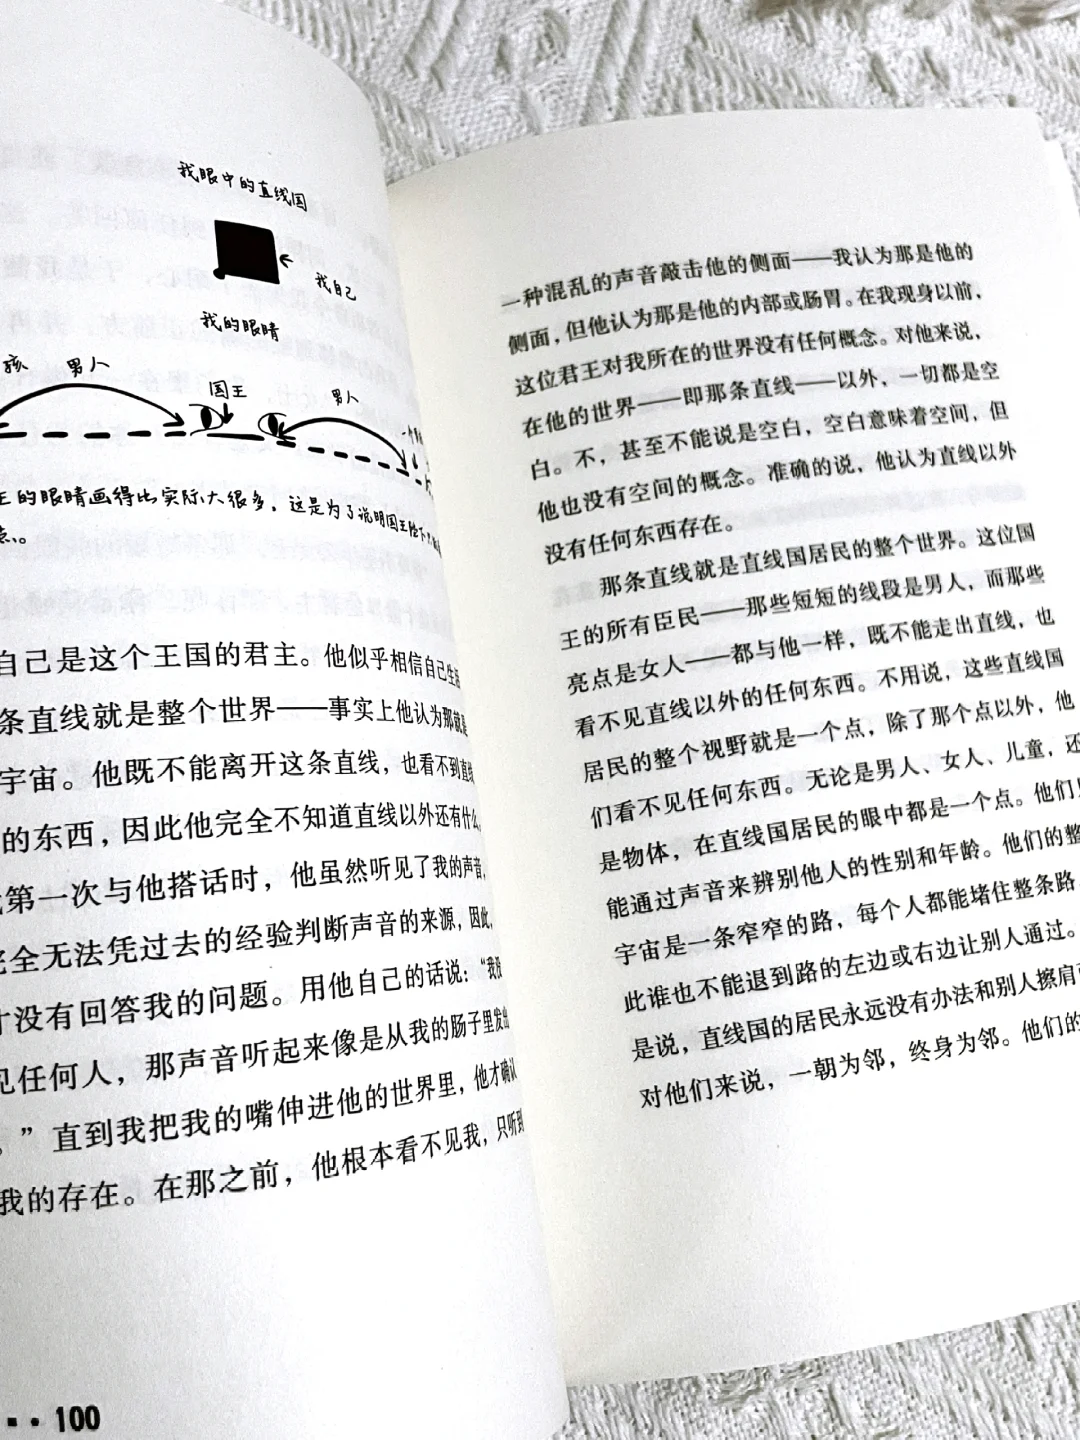 我眼中的直线国
我自己
我的眼睛
孩 男人
国王
男人
王的眼睛画得比实际大很多，这是为了说明国王
点。
自己是这个王国的君主。他似乎相信自己生活
条直线就是整个世界——事实上他认为那就是
宇宙。他既不能离开这条直线，也看不到直线
的东西，因此他完全不知道直线以外还有什么。
第一次与他搭话时，他虽然听见了我的声音，
完全无法凭过去的经验判断声音的来源，因此，
才没有回答我的问题。用他自己的话说：“我没
见任何人，那声音听起来像是从我的肠子里发出
。”直到我把我的嘴伸进他的世界里，他才确认
我的存在。在那之前，他根本看不见我，只听到
100
一种混乱的声音敲击他的侧面——我认为那是他的
侧面，但他认为那是他的内部或肠胃。在我现身以前，
这位君王对我所在的世界没有任何概念。对他来说，
在他的世界——即那条直线——以外，一切都是空
白。不，甚至不能说是空白，空白意味着空间，但
他也没有空间的概念。准确的说，他认为直线以外
没有任何东西存在。
那条直线就是直线国居民的整个世界。这位国
王的所有臣民——那些短短的线段是男人，而那些
亮点是女人——都与他一样，既不能走出直线，也
看不见直线以外的任何东西。不用说，这些直线国
居民的整个视野就是一个点，除了那个点以外，他
们看不见任何东西。无论是男人、女人、儿童，还
是物体，在直线国居民的眼中都是一个点。他们只
能通过声音来辨别他人的性别和年龄。他们的整
宇宙是一条窄窄的路，每个人都能堵住整条路，
此谁也不能退到路的左边或右边让别人通过。
是说，直线国的居民永远没有办法和别人擦肩而
对他们来说，一朝为邻，终身为邻。他们的